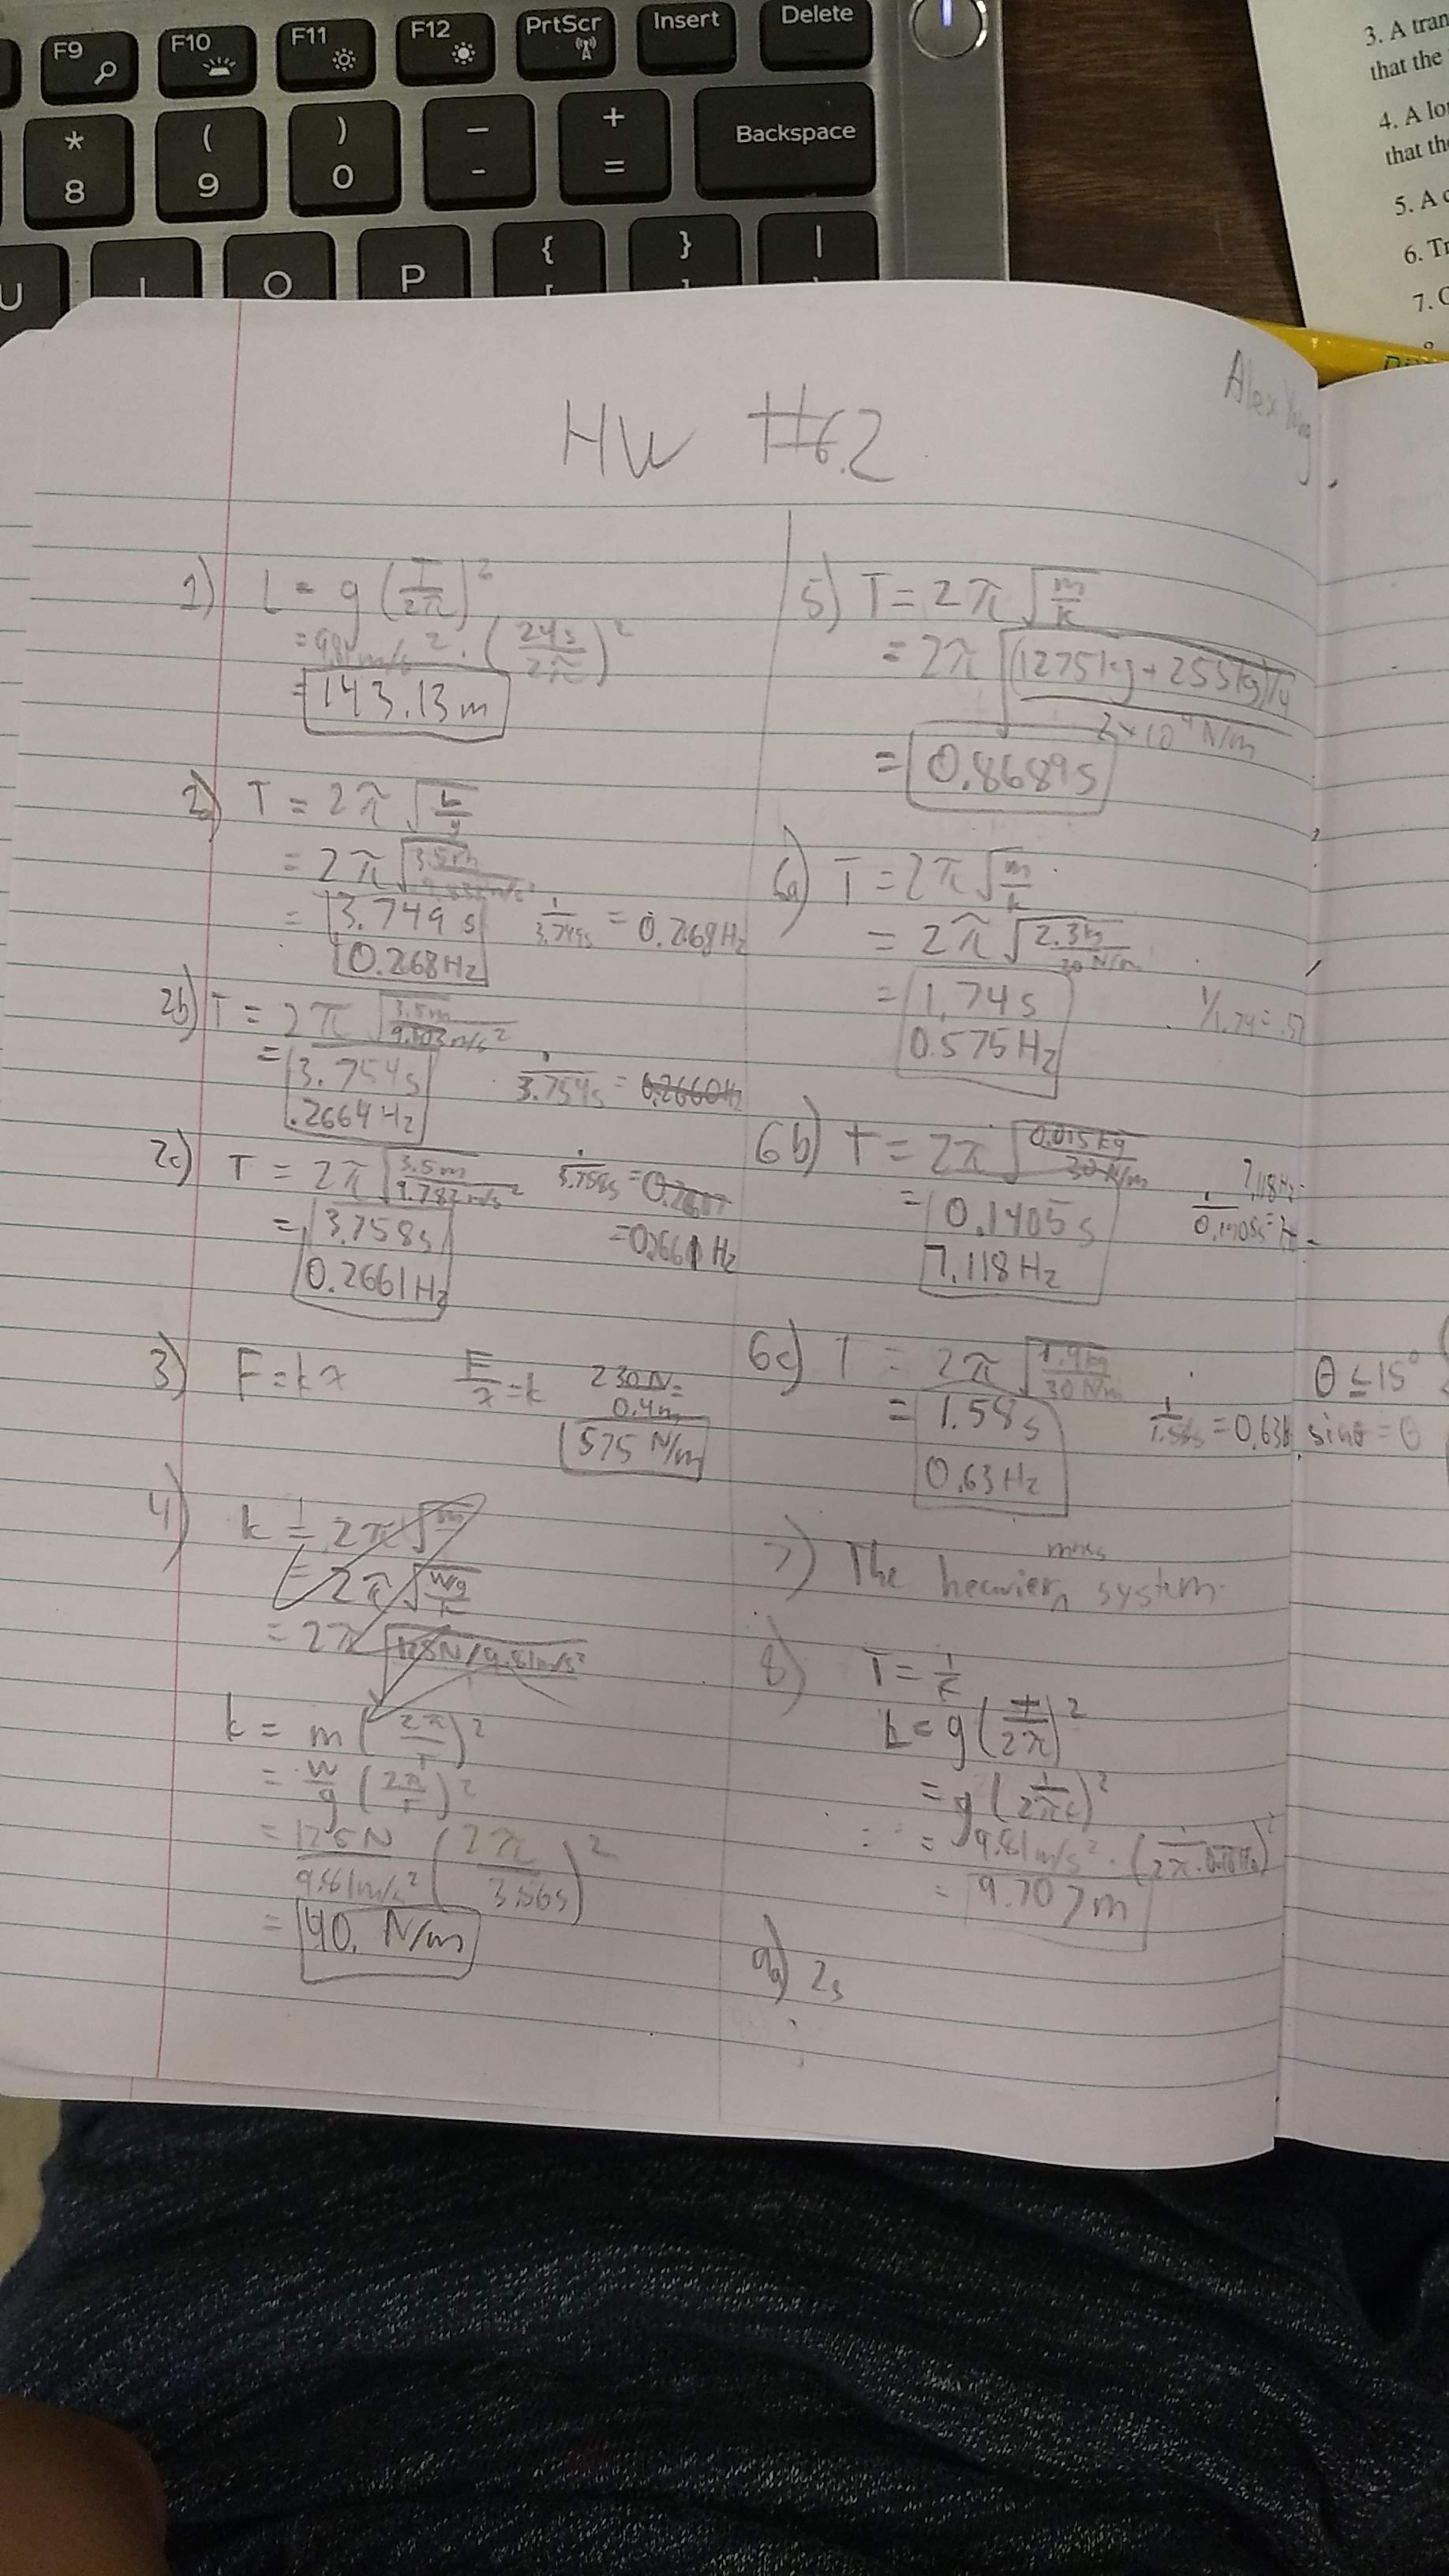 F9
F10
F11
F12
PrtScr
Insert
Delete
* 8
( 9
) 0
_ -
+ =
Backspace
U
I
O
P
{ [
} ]
|
3. A tran
that the
4. A lo
that th
5. A
6. Tr
7.
Alex
HW #6.2
1) L = g (T/2π)²
= 9.81 m/s² · (24s/2π)²
= 143.13 m
2a) T = 2π √(L/g)
= 2π √(3.5m/
= 3.749 s
1/3.749s = 0.268 Hz
0.268 Hz
2b) T = 2π √(3.5m/9.803 m/s²)
= 3.754 s
1/3.754s = 0.2660 Hz
.2664 Hz
2c) T = 2π √(3.5m/9.782 m/s²)
1/3.758s =
= 3.758 s
= 0.2661 Hz
0.2661 Hz
3) F = kx
F/x = k
230 N/0.4m =
575 N/m
4) k = 2π √
= 2π √(W/g/k)
= 2π √(125N/9.81m/s²
k = m (2π/T)²
= W/g (2π/T)²
= 125N/9.81m/s² (2π/3.56s)²
= 40. N/m
5) T = 2π √(m/k)
= 2π √((1275kg + 255kg)/4 / 2×10⁴ N/m)
= 0.8689 s
6a) T = 2π √(m/k)
= 2π √(2.3kg/30 N/m)
= 1.74 s
1/1.74 = .57
0.575 Hz
6b) T = 2π √(0.015kg/30 N/m)
= 0.1405 s
7.118 Hz
1/0.1405s =
7.118 Hz
6c) T = 2π √(1.9kg/30 N/m)
= 1.58 s
1/1.58s = 0.63
0.63 Hz
θ ≤ 15°
sinθ = θ
7) The heavier mass system.
8) T = 1/f
L = g (T/2π)²
= g (1/2πf)²
= 9.81 m/s² · (1/2π·
= 9.707 m
9a) 2s